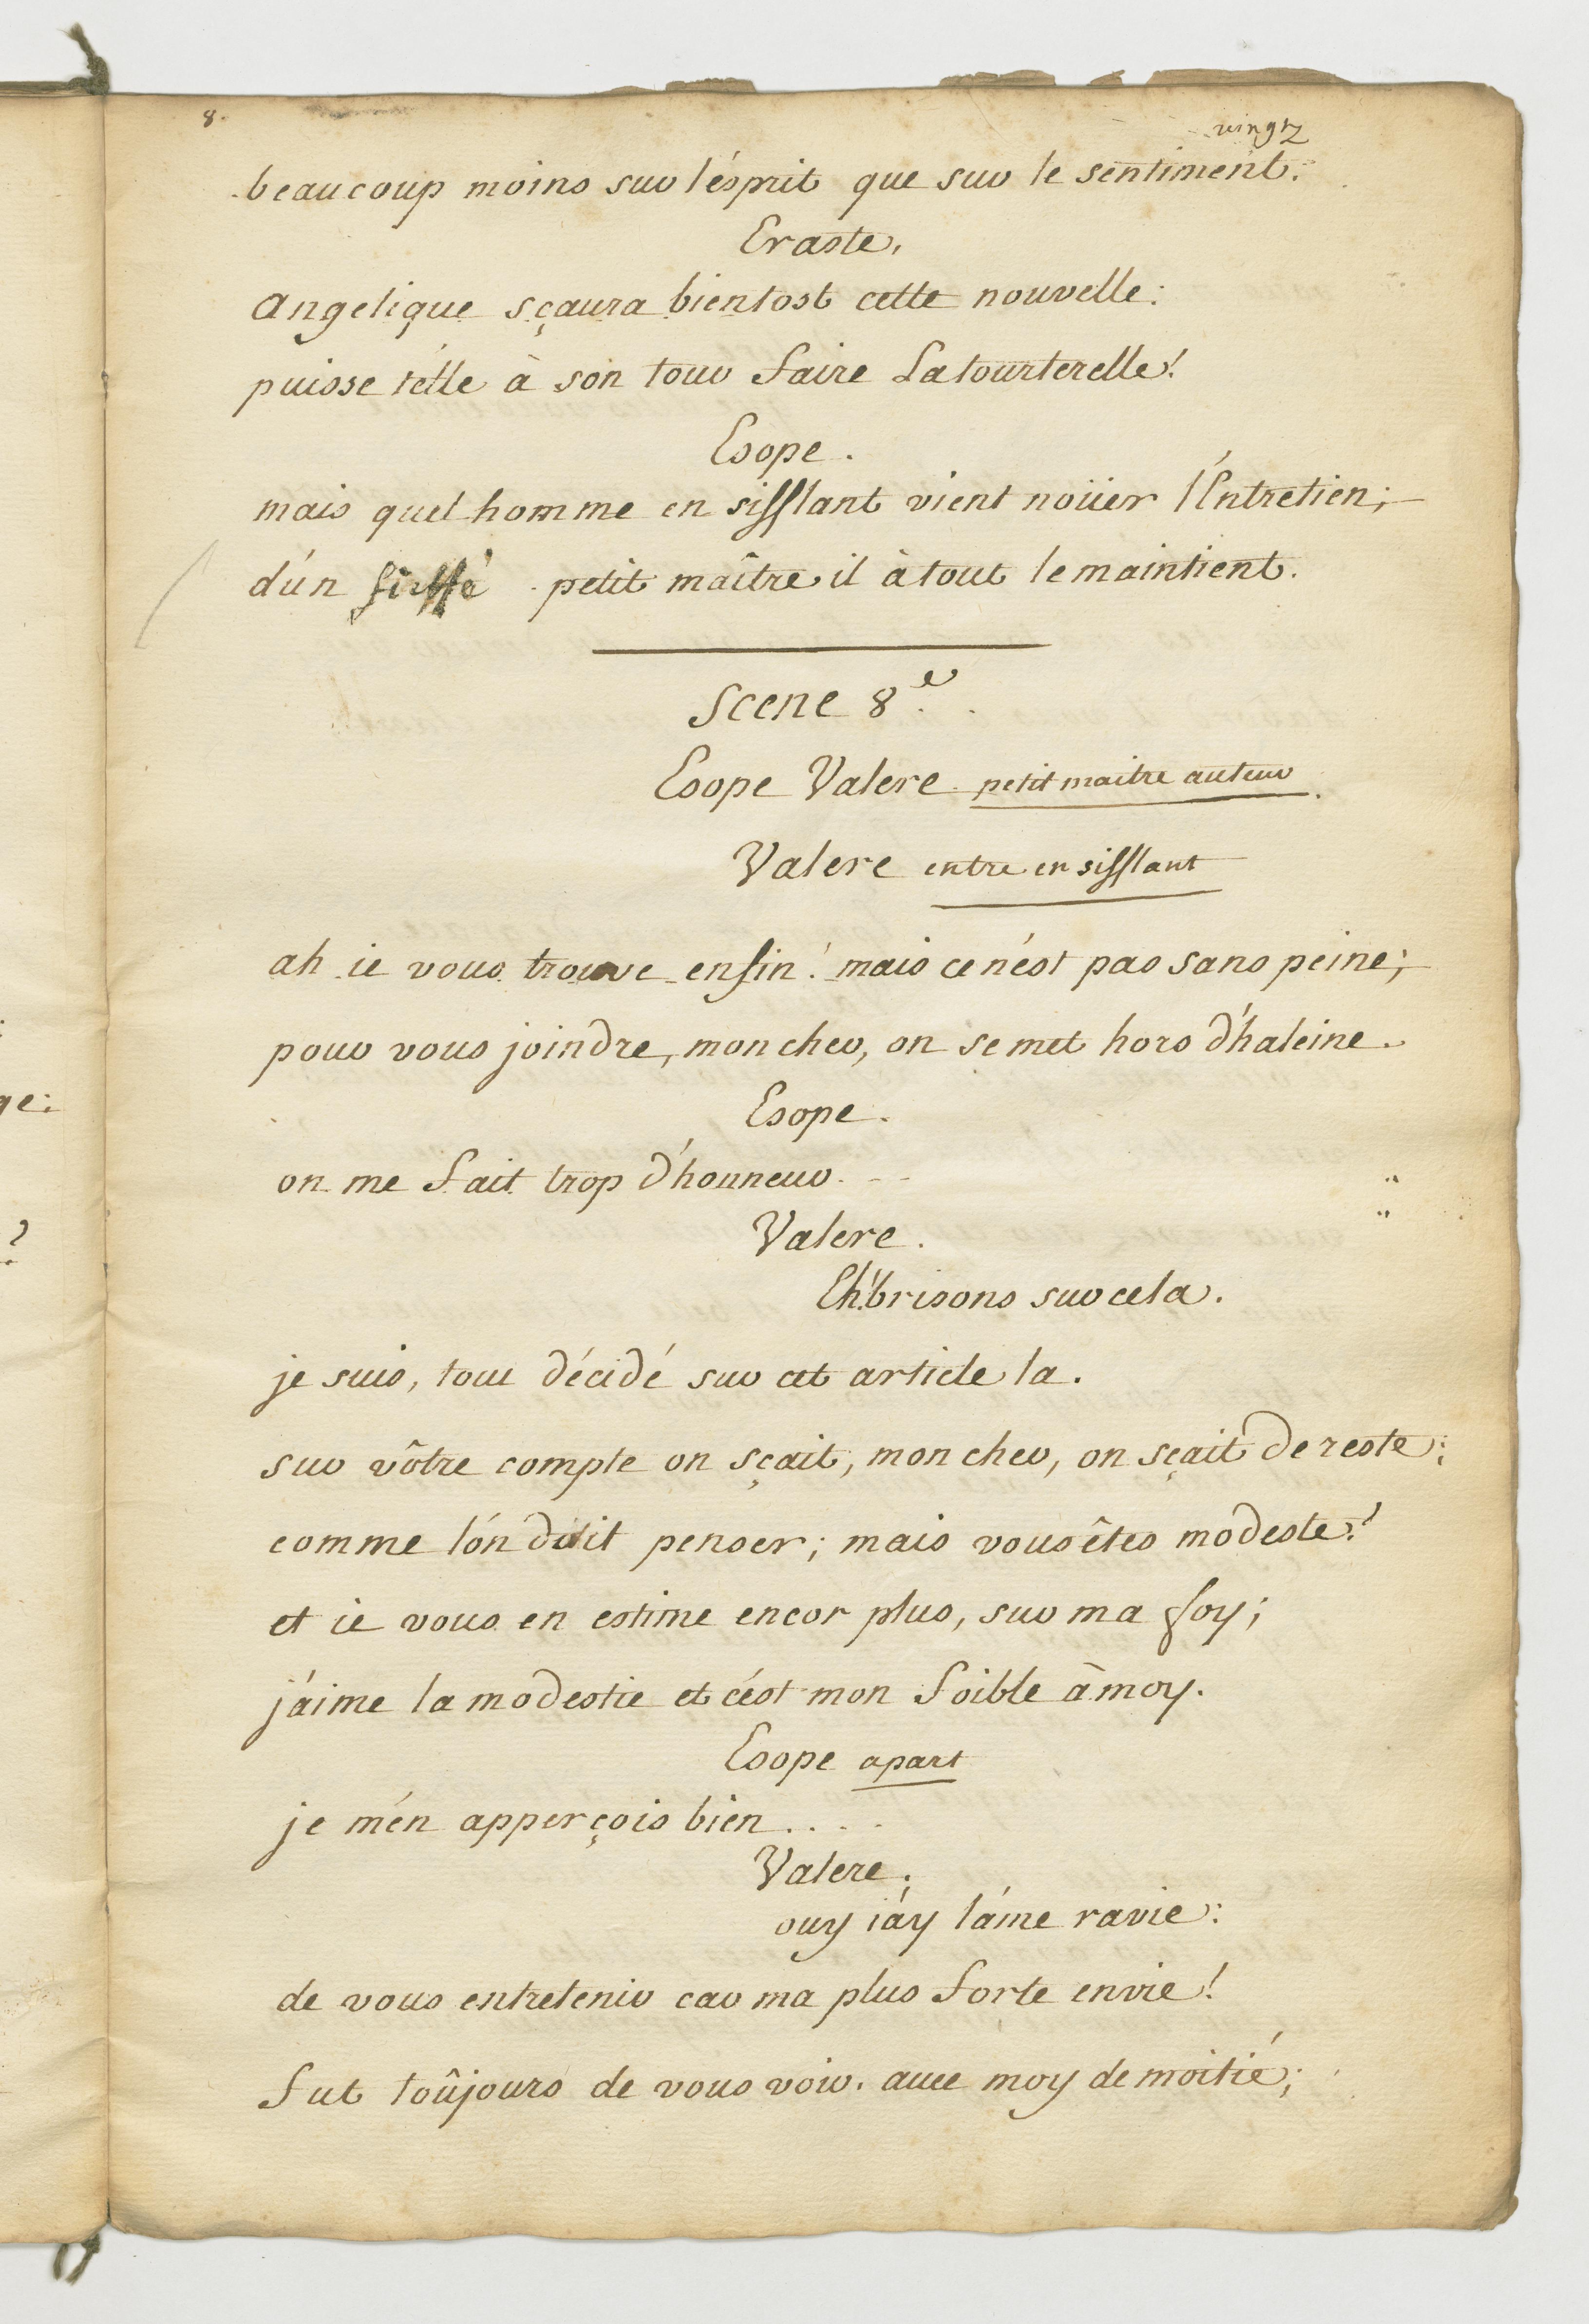 8.
vingt
beaucoup moins sur l'ésprit que sur le sentiment.
Eraste.
angelique sçaura bientost cette nouvelle:
puisse t'elle à son tour faire La tourterelle!
Esope.
mais quel homme en sifflant vient noüer l'Entretien;
d'ún petit maître il à tout le maintient.
Scene 8.e
Esope Valere. petit maitre auteur.
Valere entre en sifflant
ah ie vous trouve enfin! mais ce n'ést pas sans peine;
pour vous joindre, mon cher, on se met hors d'haleine.
Esope.
on me fait trop d'honneur. - -
Valere.
Eh! brisons sur cela.
je suis, tout décidé sur cet article la.
sur vôtre compte on sçait, mon cher, on sçait de reste;
comme l'ón doit penser; mais vous êtes modeste!
et ie vous en estime encor plus, sur ma foy;
j'aime la modestie et c'ést mon foible à moy.
Esope apart
je m'én apperçois bien....
Valere.
ouy i'áy l'áme ravie:
de vous entretenir car ma plus forte envie!
fut toûjours de vous voir. avec moy de moitié;
ge:
?